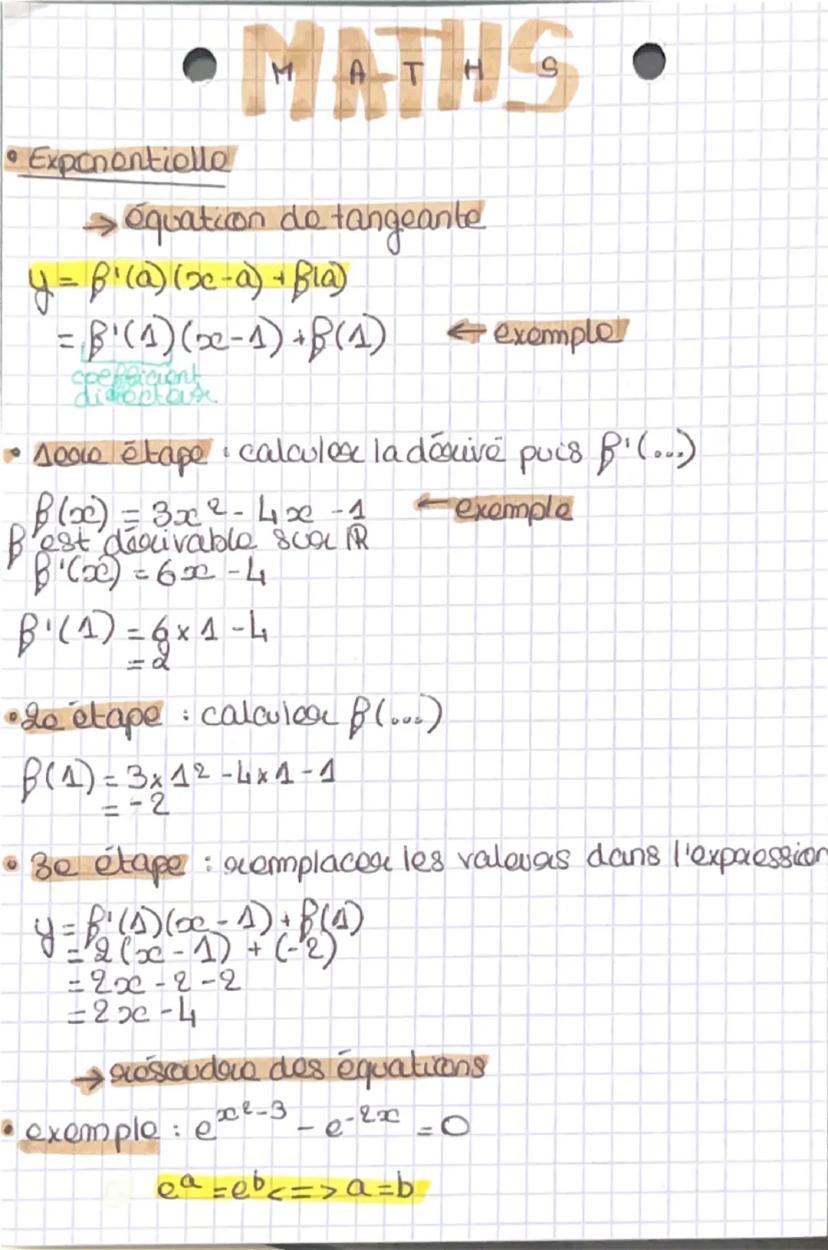 MATHS
• Exponentielle
→ équation de tangeante
y = f'(a)(x-a) + f(a)
= f'(1)(x-1) + f(1) ← exemple
coefficient
directeur
• 1ere étape : calculer la dérivé puis f'(...)
f(x) = 3x² - 4x - 1 ← exemple
f est dérivable sur ℝ
f'(x) = 6x - 4
f'(1) = 6 x 1 - 4
= 2
• 2e étape : calculer f(...)
f(1) = 3 x 1² - 4 x 1 - 1
= -2
• 3e étape : remplacer les valeurs dans l'expression
y = f'(1)(x - 1) + f(1)
= 2(x - 1) + (-2)
= 2x - 2 - 2
= 2x - 4
→ résoudre des équations
• exemple : e^(x²-3) - e^(-2x) = 0
e^a = e^b <=> a = b